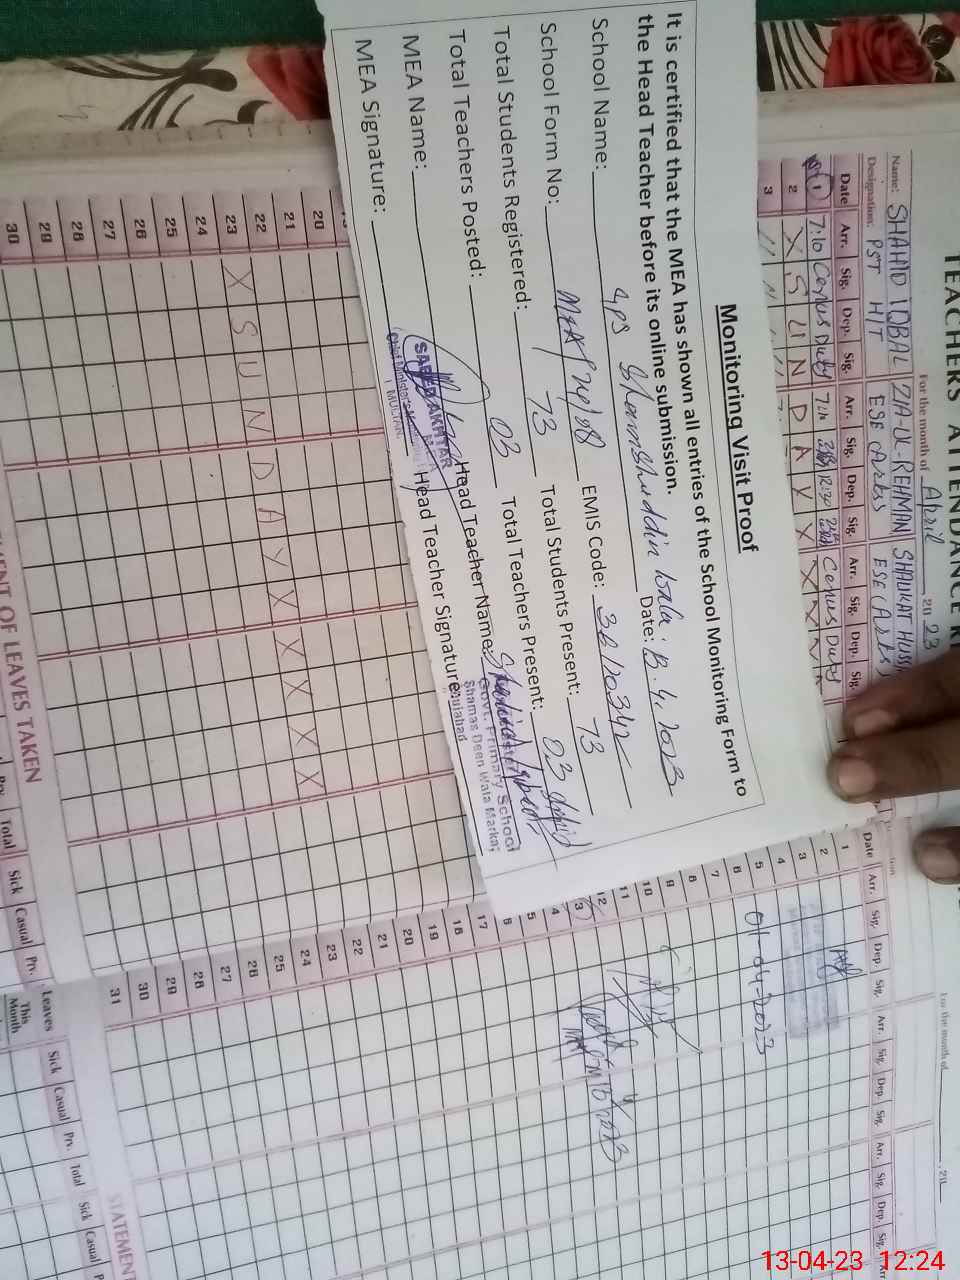 Monitoring Visit Proof
It is certified that the MEA has shown all entries of the School Monitoring Form to
the Head Teacher before its online submission.
School Name: GPS Shamshuddin Wala. Date: 13.4.2023
School Form No: EMIS Code:
Total Students Registered: 73 Total Students Present: 73
Total Teachers Posted: 03 Total Teachers Present: 03
MEA Name: Head Teacher Name:
MEA Signature: Head Teacher Signature:
SAEED AKHTAR
MULTAN.
Govt. Primary School
Shamas Deen Wala Marka
Shujabad
TEACHERS ATTENDANCE RE
For the month of April 2023
Name: SHAHID IQBAL ZIA-U-REHMAN SHAUKAT HUSS
Designation: PST H/T ESE Arts ESE (Arts)
Date Arr. Sig. Dep. Sig. Arr. Sig. Dep. Sig. Arr. Sig. Dep. Sig.
1 7:10 Census Duty Census Duty
2 X S U N D A Y X X X
3
20
21
22
23 X S U N D A Y X X X X X
24
25
26
27
28
29
30
MENT OF LEAVES TAKEN
Total Sick Casual Prv.
For the month of , 20
Date Arr. Sig. Dep. Sig. Arr. Sig. Dep. Sig. Arr. Sig. Dep. Sig. Arr.
1
2
3
4
5 01-04-2023
6
7
8
9
10
11
12
17
18
19
20
21
22
23
24
25
26
27
28
29
30
31
STATEMENT
Leaves Sick Casual Prv. Total Sick Casual
This Month
13-04-23 12:24